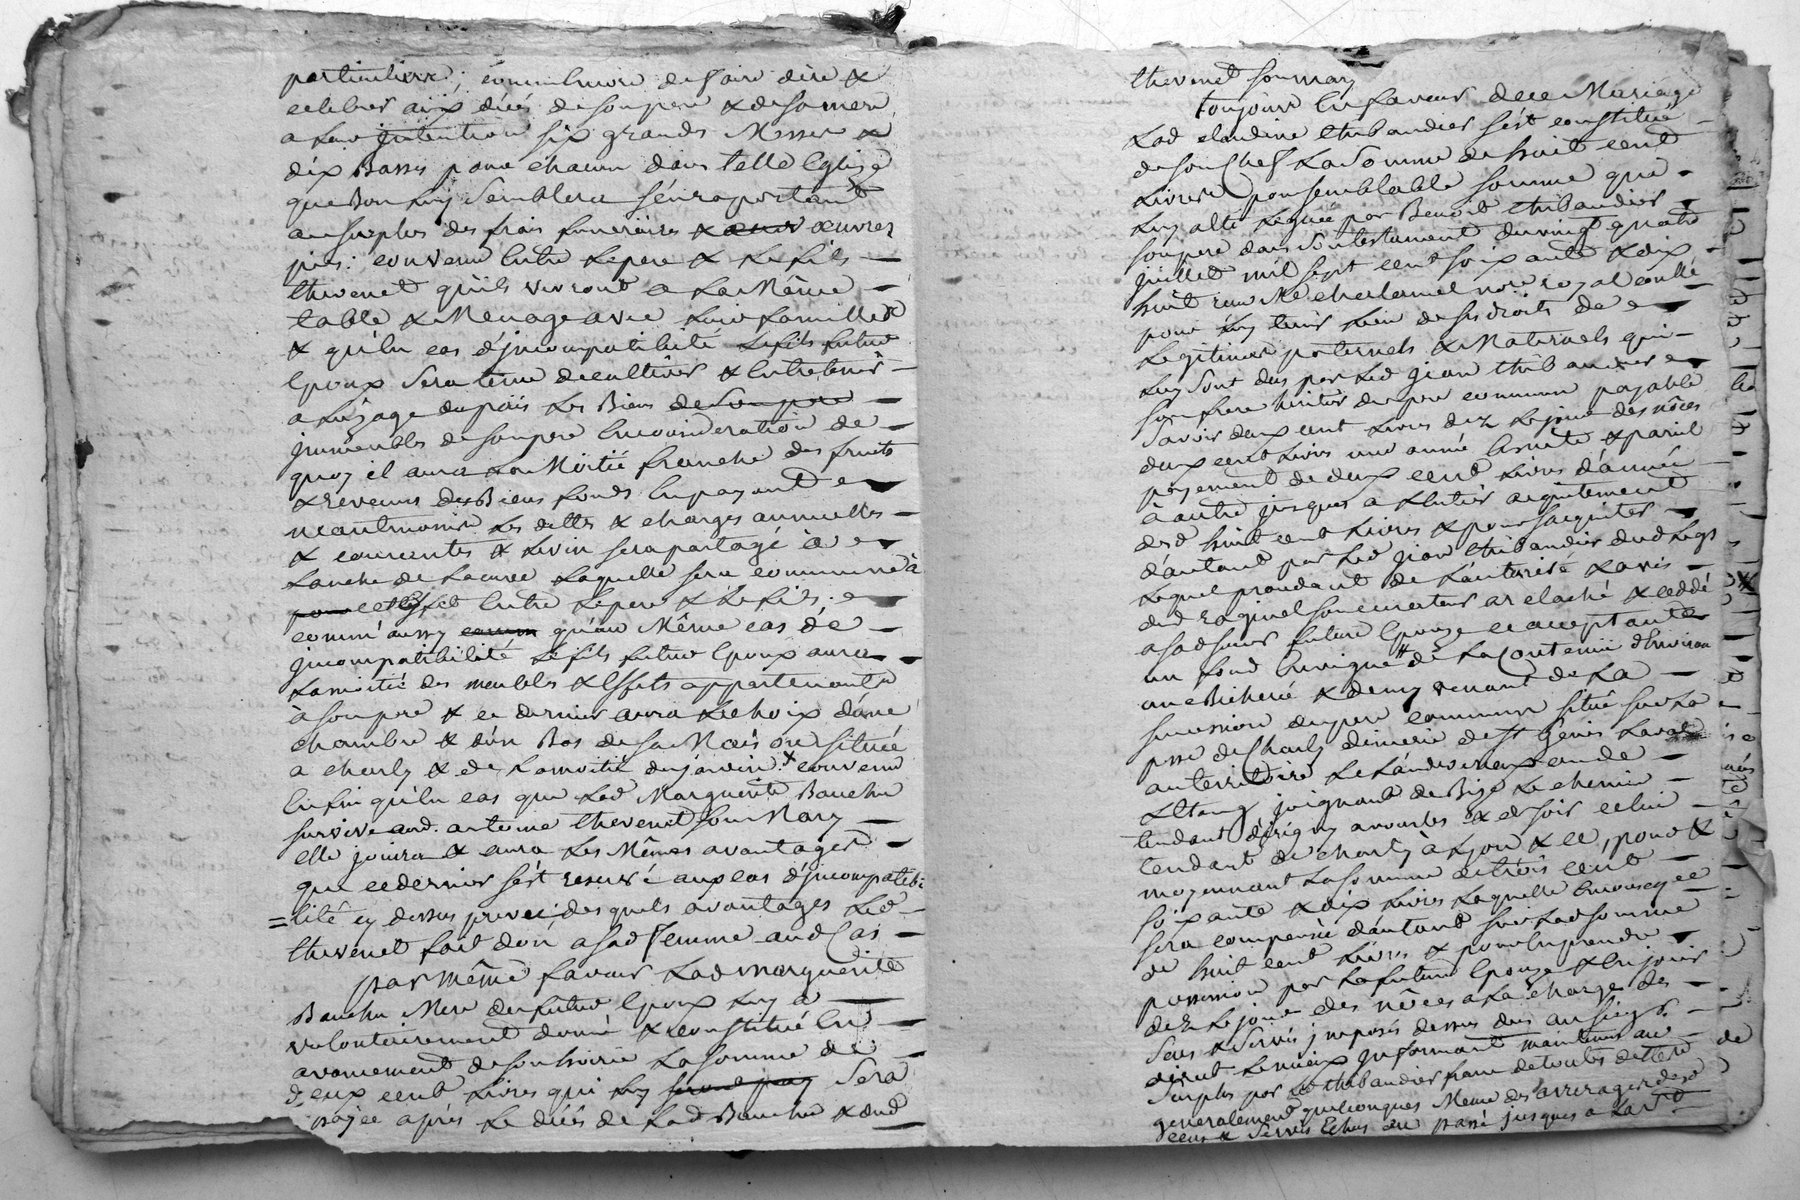 particuliere; comm'encore de faire dire &
celebrer aux décés de son pere & de sa mere
a leur jntention six grandes Messes &
dix Basses pour chacun dans telle Eglise
que Bon luy Semblera s'en raportant
au surplus des frais funeraires & œuvres
pies: convenu Entre le pere & le fils
thevenet qu'ils vivront a la Même
table & Menage avec leurs familles
& qu'En cas d'jncompatibilité le fils futur
Epoux Sera tenu de cultiver & Entretenir
a l'uzage du païs les Biens de son pere
jmmeubles de son pere En consideration de
quoy il aura la Moitié franche des fruits
& revenus des Biens fonds En payant
neantmoins les dettes & charges annuelles
& courantes & le vin sera partagé à
l'anche de la cuve laquelle sera commune à
pour cet effet Entre le pere & le fils:
comm'aussy qu'au Même cas de
jncompatibilité le fils futur Epoux aura
la moitié des meubles & Effets appartenants
à son pere & ce dernier aura le choix d'une
chambre & d'un Bas de sa Maison située
a charly & de la moitié du jardin x convenu
Enfin qu'En cas que lad Marguerite Bauchu
survive aud. antoine thevenet son Mary
elle jouira & aura les Mêmes avantages
que ce dernier s'est reservé aux cas d'jncompatibi
=lité cy dessus prevu; desquels avantages led
thevenet fait don a sad femme aud cas
par même faveur lad marguerite
Bauchu Mere du futur Epoux luy a
volontairement donné & constitué En
avancement de son hoirie la somme de
deux cent livres qui luy Sera
payée après le décés de lad Bauchu & dud
thevenet son mary
toujours En faveur de ce Mariage
Lad claudine thibaudier s'est constitué
de son Chef La Somme de huit cent
Livres pour semblable somme que
luy a été leguée par Benoit thibaudier
son pere dans son testament du vingt quatre
juillet mil sept cent soixante & dix
huit reçu Me notre royal
pour luy tenir lieu de ses droits de
Legitimes paternels & Maternels qui
luy sont dus par led jean thibaudier
son frere heritier du pere commun payable
Savoir deux cent livres dez le jour des nôces
deux cent livres une année Ensuite & pareil
payement de deux cent livres d'année
à autre jusques a l'Entier acquittement
desd huit cent livres & pour s'acquitter
d'autant par led jean thibaudier dud legs
lequel procedant de l'autorité & avis
dud son curateur a relaché & ceddé
a sad sœur future Epouze ce acceptante
un fond En vigne # de la Contenüe d'Environ
une Bicherée & demy venant de la
succession du pere commun situé sur la
psse de Charly dimerie de St Genis Laval
au territoire
joignant de Bize le chemin
tendant d'jrigny a & de soir celui
tendant de charly à Lyon & ce, pour &
moyennant la somme de trois cent
soixante & dix livres laquelle
sera compensée d'autant sur lad somme
de huit cent livres & pour En prendre
possession par la future Epouze & En jouir
dez le jour des nôces a la charge des
Sens & Servis jmposés dessus dûs au Sieigr.
direct le mieux jnformant maintenu au
surplus par led thibaudier franc de toutes dettes
generalement quelconques Meme des arrerages desd
cens & Servis Echus du passé jusques a